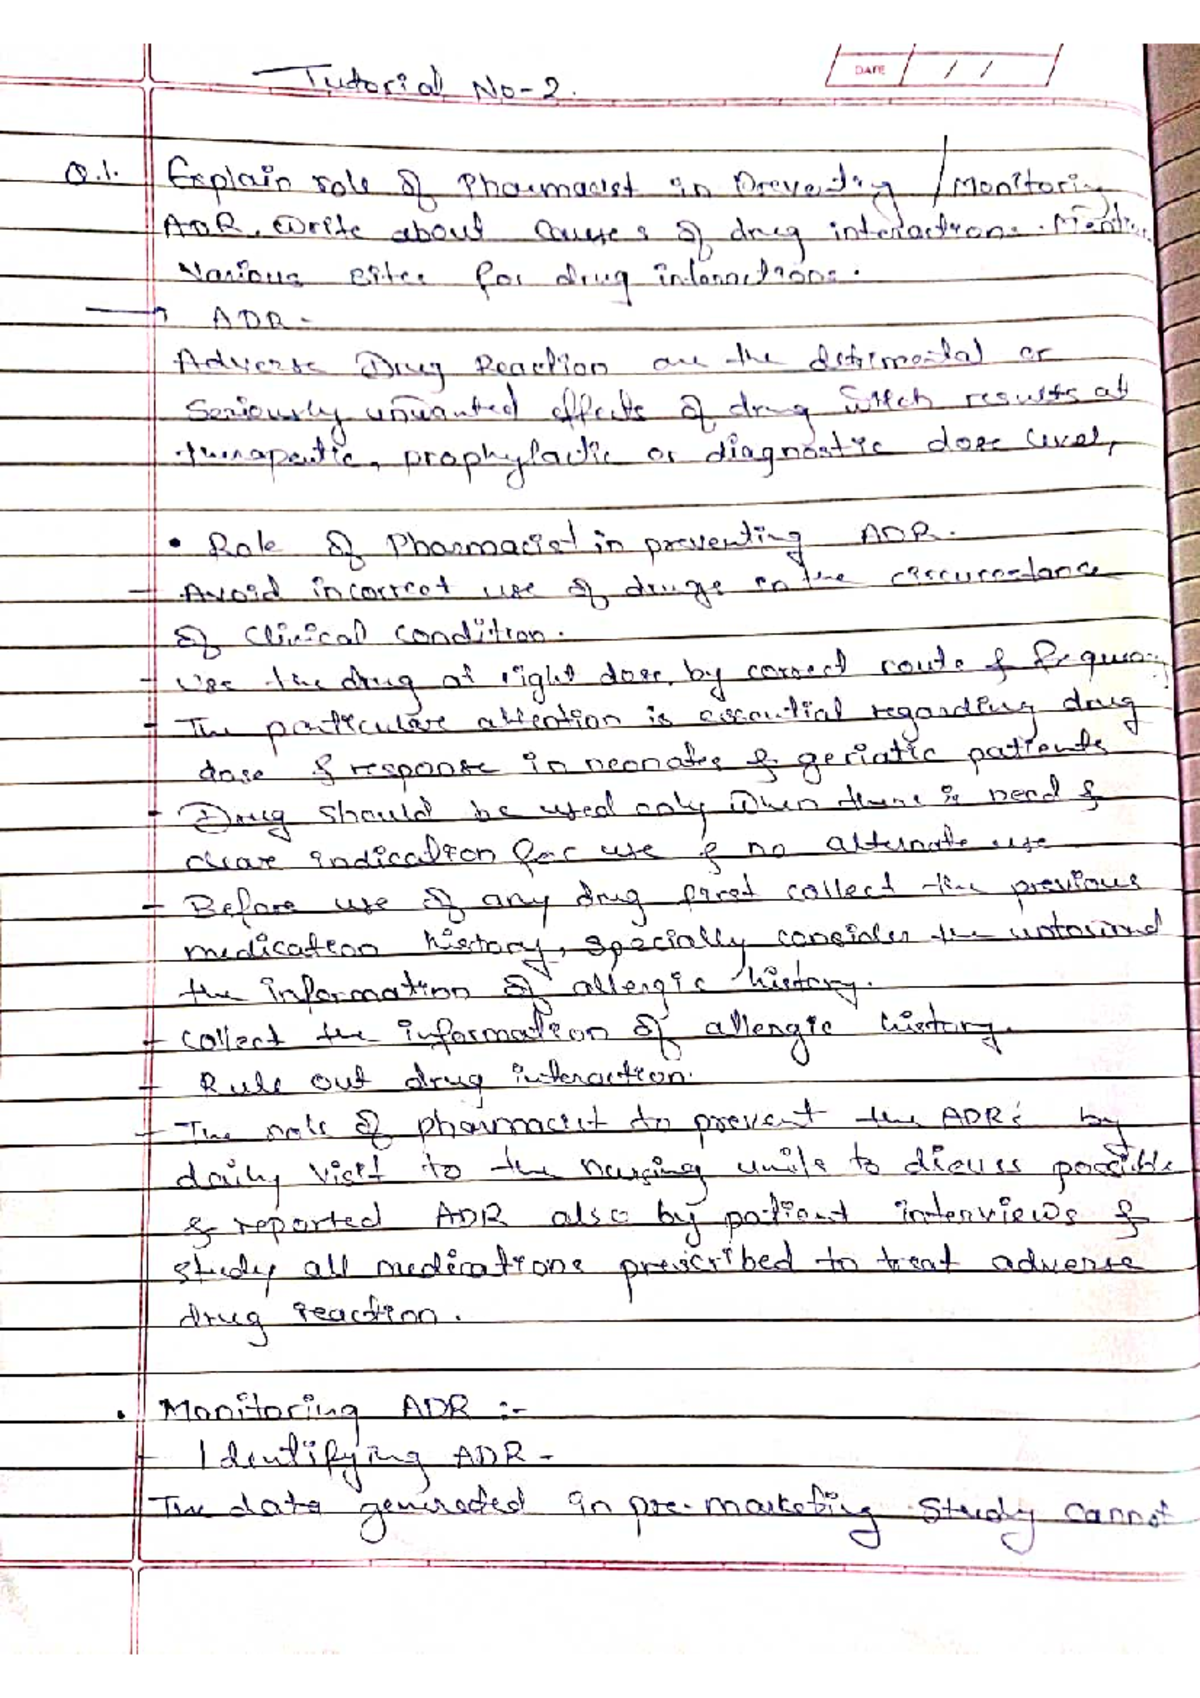 Tutorial No-2.
DATE / /
Q.1. Explain role of Pharmacist in Preventing / Monitoring
ADR. Write about causes of drug interactions. Mention
Various sites for drug interactions.
→ ADR -
Adverse Drug Reaction are the detrimental or
Seriously unwanted effects of drug which results at
therapeutic, prophylactic or diagnostic dose level,
• Role of Pharmacist in preventing ADR.
- Avoid incorrect use of drugs in the circumstance
of clinical condition.
- Use the drug at right dose, by correct route & frequency
- The particulare attention is essential regarding drug
dose & response in neonates & geriatic patients
- Drug should be used only when there is need &
cleare indication for use & no alternate use
- Before use of any drug first collect the previous
medication history, specially consider the
the information of allergic history.
- Collect the information of allergic history.
- Rule out drug interaction.
- The role of pharmacist to prevent the ADR's by
daily visit to the nursing units to discuss possible
& reported ADR also by patient interviews &
study all medications prescribed to treat adverse
drug reaction.
• Monitoring ADR :-
- Identifying ADR -
The data generated in pre-marketing study cannot